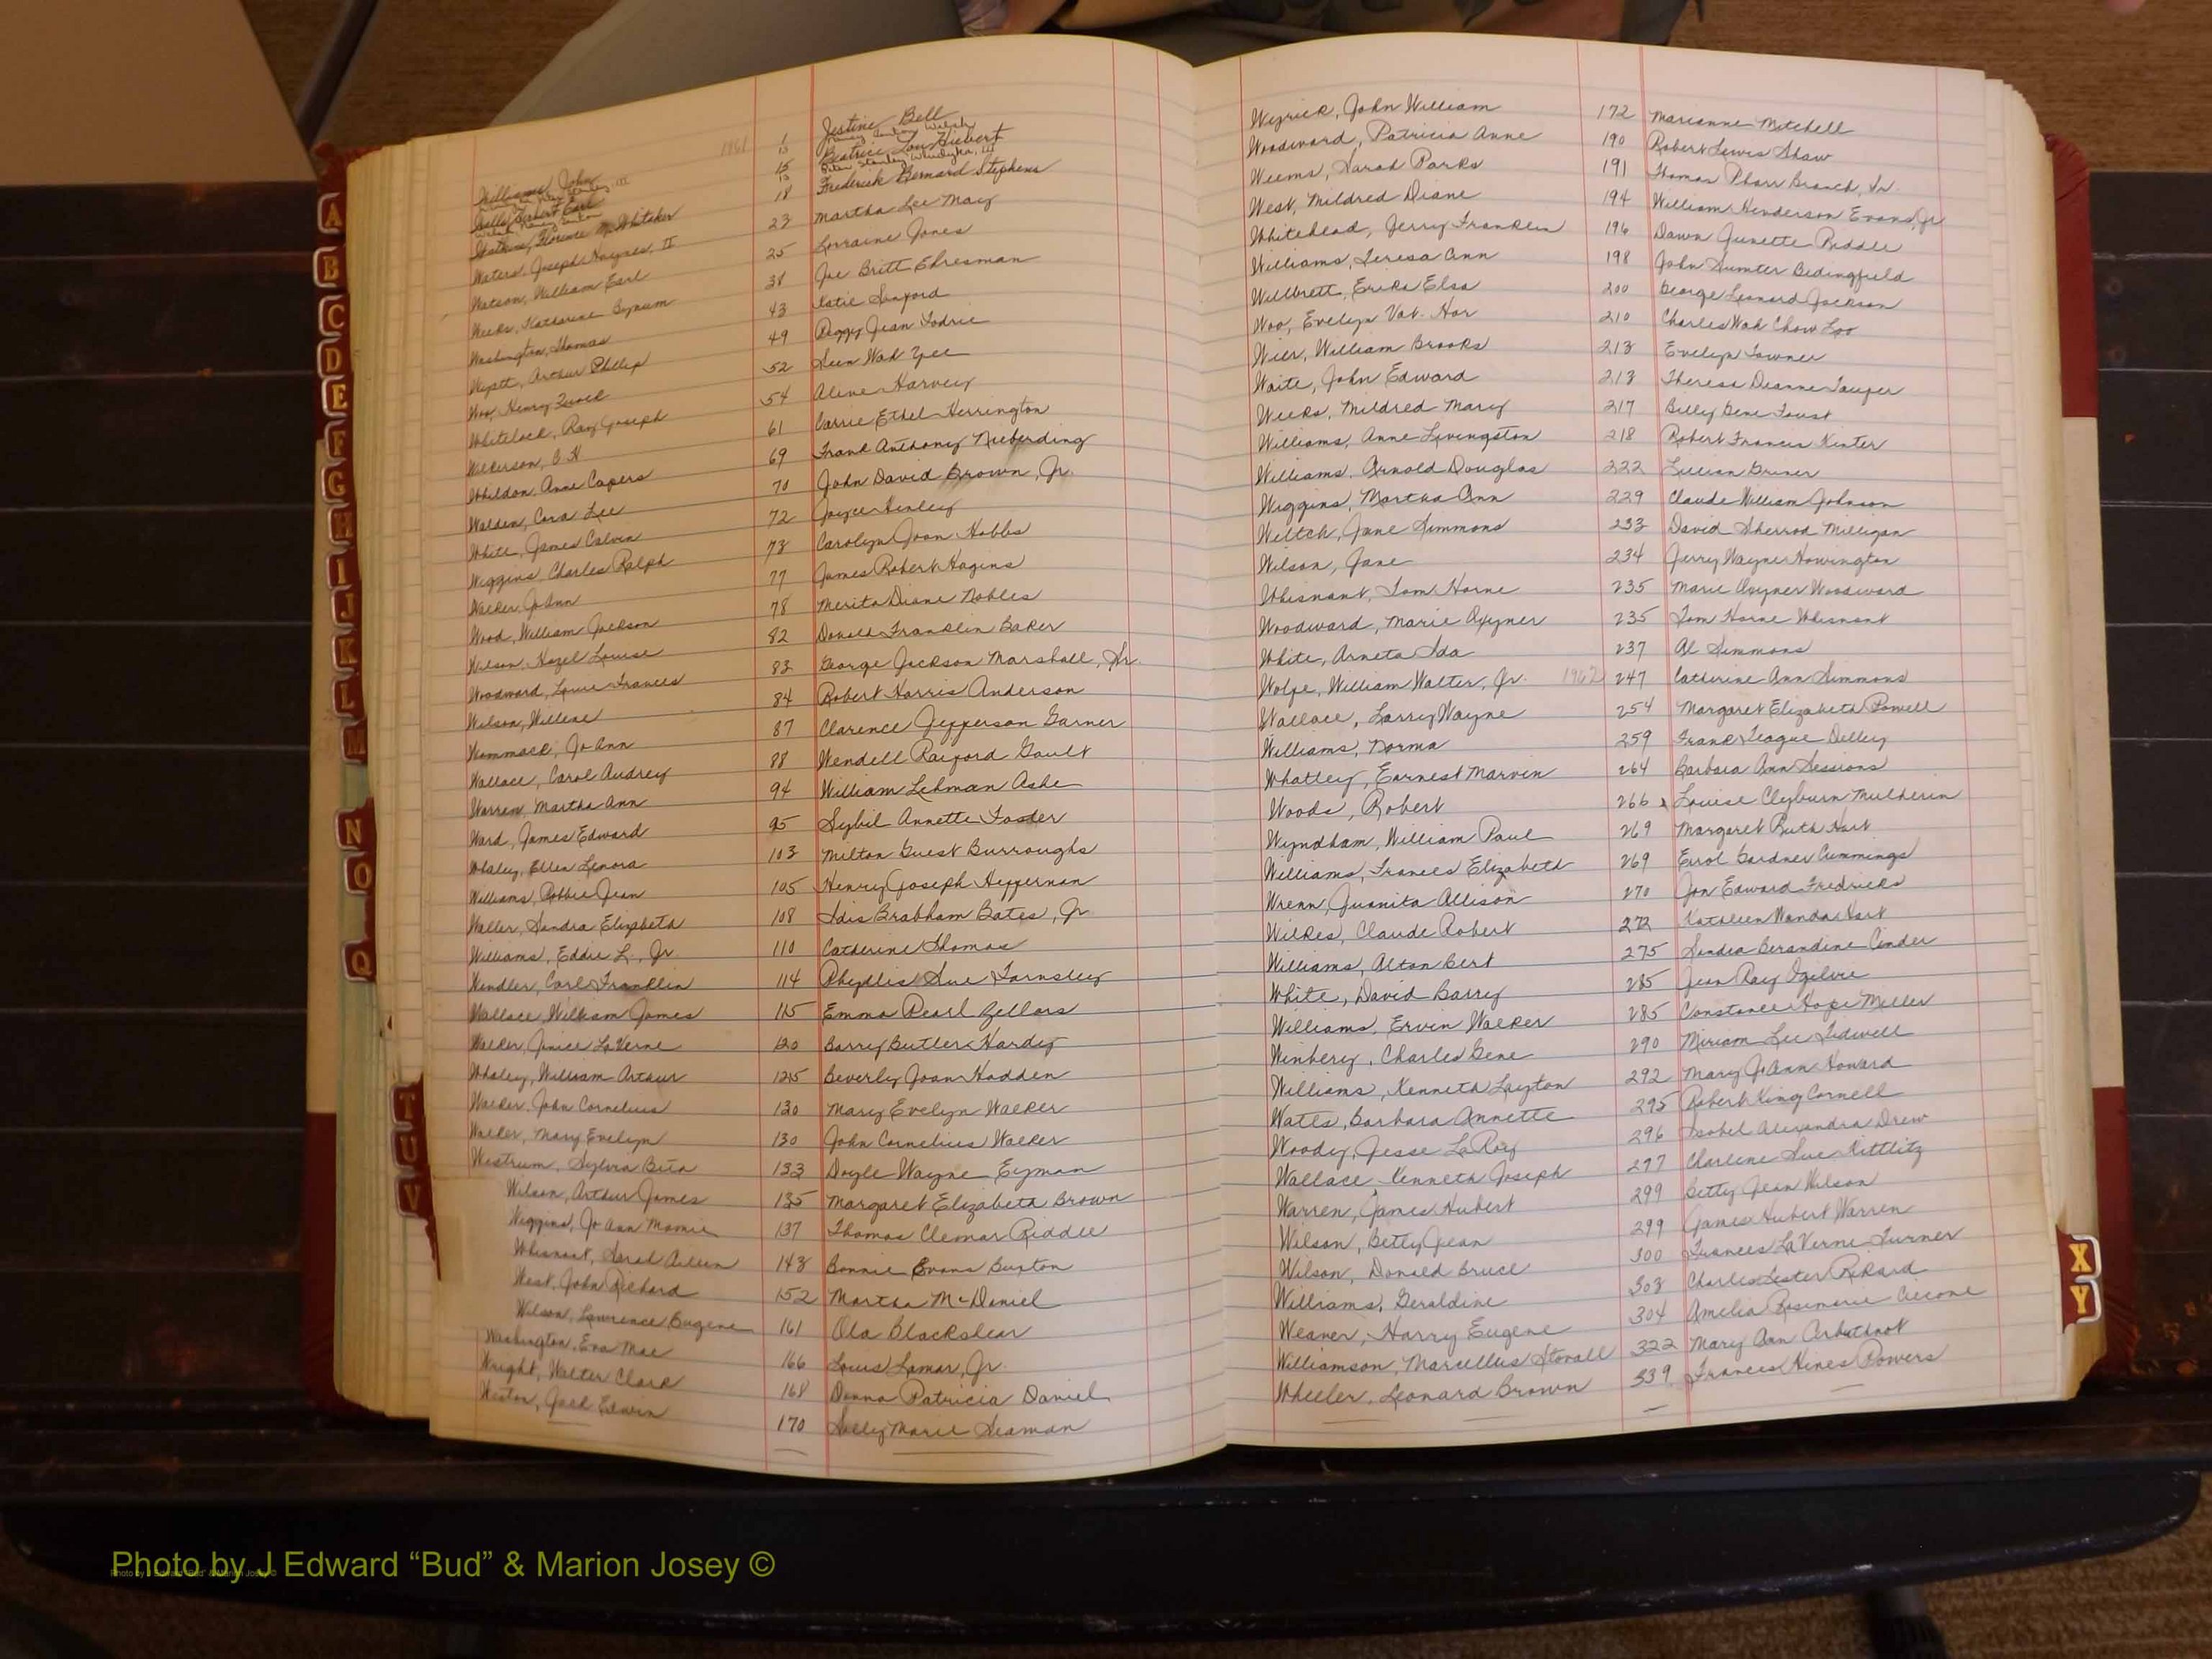 1961
Williams, John 1 Jestine Bell
III 13 Nancy Welsh
Wells, Hubert Earl 15 Beatrice Lou Hiebert
Welsh, Nancy 13 Peter Stanley III
Watkins, Florence M. Whitaker 18 Frederick Bernard Stephens
Waters, Joseph Haynes, II 23 Martha Lee May
Watson, William Earl 25 Lorraine Jones
Weeks, Katharine Bynum 38 Joe Britt Ehresman
Washington, Thomas 43 Katie Sanford
Wyatt, Arthur Phillip 49 Peggy Jean
Woo, Henry 52 Seen Wah Yee
Whitelock, Ray Joseph 54 Aline Harvey
Wilkerson, C H 61 Carrie Ethel Herrington
Whildon, Anne Capers 69 Frank Anthony Nieberding
Walden, Cora Lee 70 John David Brown, Jr.
White, James Calvin 72 Joyce Henley
Wiggins, Charles Ralph 73 Carolyn Joan Hobbs
Walker, Jo Ann 77 James Robert Hagins
Wood, William Jackson 78 Merita Diane Nobles
Wilson, Hazel Louise 82 Donald Franklin Baker
Woodward, Louise Frances 83 George Jackson Marshall, Sr.
Wilson, Willene 84 Robert Harris Anderson
Wommack, Jo Ann 87 Clarence Jefferson Garner
Wallace, Carol Audrey 88 Wendell Raiford Gault
Warren, Martha Ann 94 William Lehman Ashe
Ward, James Edward 95 Sybil Annette Foster
Whaley, Ellen Lenora 103 Milton Guest Burroughs
Williams, Bobbie Jean 105 Henry Joseph Heffernan
Waller, Sandra Elizabeth 108 Idis Brabham Bates, Jr.
Williams, Eddie L., Jr. 110 Catherine Thomas
Windler, Carl Franklin 114 Phyllis Sue Farnsley
Wallace, William James 115 Emma Pearl Zellars
Walker, Janice LaVerne 120 Barry Butler Hardy
Whaley, William Arthur 125 Beverly Joan Hadden
Walker, John Cornelius 130 Mary Evelyn Walker
Walker, Mary Evelyn 130 John Cornelius Walker
Westrum, Sylvia 133 Doyle Wayne Eyman
Wilson, Arthur James 135 Margaret Elizabeth Brown
Wiggins, Jo Ann Mamie 137 Thomas Clemar Riddle
Whisnant, Sarah Aileen 143 Bonnie Evans Buxton
West, John Richard 152 Martha McDaniel
Wilson, Lawrence Eugene 161 Ola Blackshear
Washington, Eva Mae 166 Louis Lamar, Jr.
Wright, Walter Clark 168 Donna Patricia Daniel
Weston, Jack Edwin 170 Sally Marie Seaman
Weyrick, John William 172 Marianne Mitchell
Woodward, Patricia Anne 190 Robert Lewis Shaw
Weems, Sarah Parks 191 Thomas Pharr Branch, Sr.
West, Mildred Diane 194 William Henderson Evans, Jr
Whitehead, Jerry Franklin 196 Dawn Junette Riddle
Williams, Teresa Ann 198 John Sumter Bedingfield
Willbrett, Erika Elsa 200 George Leonard Jackson
Woo, Evelyn Yat Hor 210 Charles Wah Chow Loo
Wier, William Brooks 213 Evelyn Towner
Waite, John Edward 213 Theresa Deanne
Weeks, Mildred Mary 217 Billy Gene Foust
Williams, Anne Livingston 218 Robert Francis Kinter
Williams, Arnold Douglas 222 Lillian Griner
Wiggins, Martha Ann 229 Claude William Johnson
Weltch, Jane Simmons 233 David Sherrod Milligan
Wilson, Jane 234 Jerry Wayne Howington
Whisnant, Tom Horne 235 Marie Avyner Woodward
Woodward, Marie Avyner 235 Tom Horne Whisnant
White, Arneta Ida 237 Al Simmons
Wolfe, William Walter, Jr. 1962 247 Catherine Ann Simmons
Wallace, Larry Wayne 254 Margaret Elizabeth Powell
Williams, Norma 259 Frank Teague Dilley
Whatley, Earnest Marvin 264 Barbara Ann Sessions
Woods, Robert 266 Louise Clyburn Mulherin
Wyndham, William Paul 269 Margaret Ruth Hart
Williams, Frances Elizabeth 269 Errol Gardner Cummings
Wrenn, Juanita Allison 270 Jon Edward Fredricks
Wilkes, Claude Robert 272 Kathleen Wanda Hart
Williams, Alton Bert 275 Sandra Berandine Cinder
White, David Barry 285 Jean Ray Ogilvie
Williams, Ervin Walker 285 Constance Hope Miller
Winbery, Charles Gene 290 Miriam Lee Tidwell
Williams, Kenneth Layton 292 Mary Jo Ann Howard
Watts, Barbara Annette 295 Robert King Cornell
Woody, Jesse LaRoy 296 Isobel Alexandra Drew
Wallace Kenneth Joseph 297 Charlene Sue Kittlitz
Warren, James Hubert 299 Betty Jean Wilson
Wilson, Betty Jean 299 James Hubert Warren
Wilson, Donald Bruce 300 Frances LaVerne Turner
Williams, Geraldine 303 Charles Lester Rikard
Weaver, Harry Eugene 304 Amelia Rosemarie Ciccone
Williamson, Marcellus Stovall 322 Mary Ann Arbuthnot
Wheeler, Leonard Brown 339 Frances Hines Powers
A
B
C
D
E
F
G
H
I
J
K
L
M
N
O
Q
T
U
V
X
Y
Photo by J Edward “Bud” & Marion Josey ©
Photo by J Edward "Bud" & Marion Josey ©